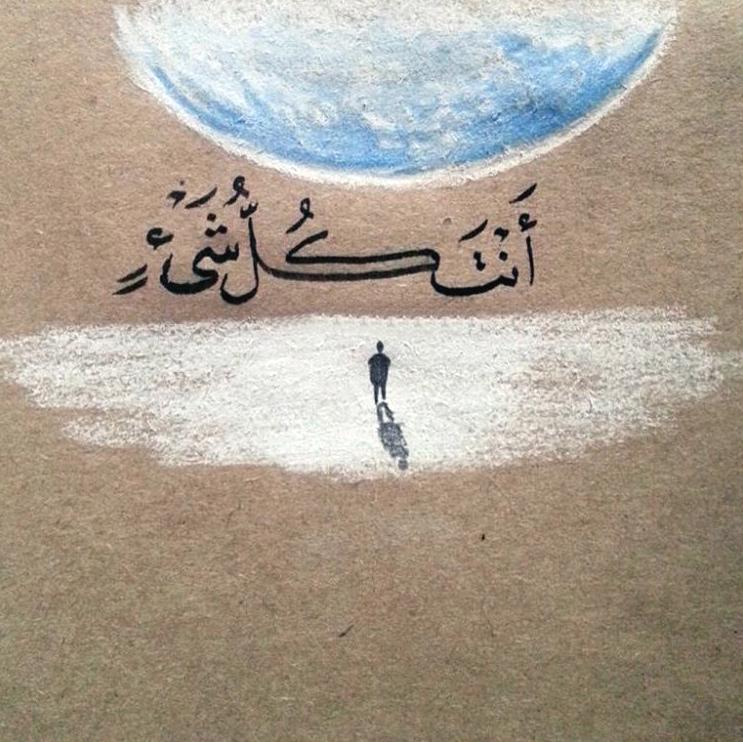 أَنْتَ كُلُّ شَىْءٍ